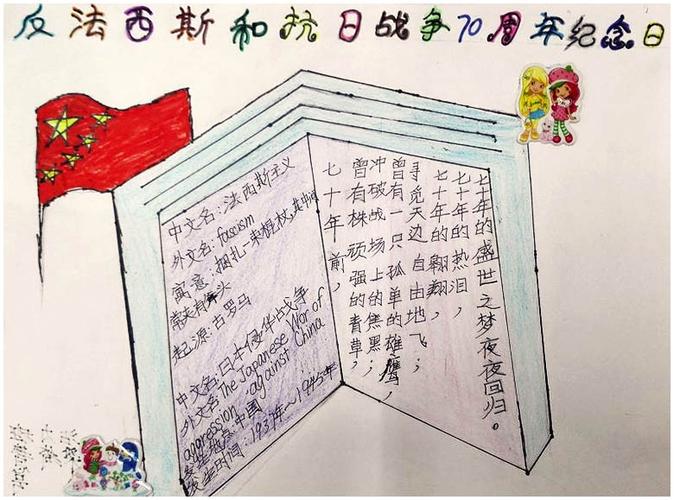 反法西斯和抗日战争70周年纪念日
中文名：法西斯主义
外文名：fascism
寓意：捆扎一束棍权，其中间
常夹有斧头
起源：古罗马
中文名：日本侵华战争
外文名：The Japanese War of
aggression against China
发生地点：中国
发生时间：1937年～1945年
七十年前，
曾有株顽强的青草，
冲破战场上的焦黑；
曾有一只孤单的雄鹰，
寻觅天边自由地飞；
七十年的翱翔，
七十年的热泪，
七年的盛世之梦夜夜回归。